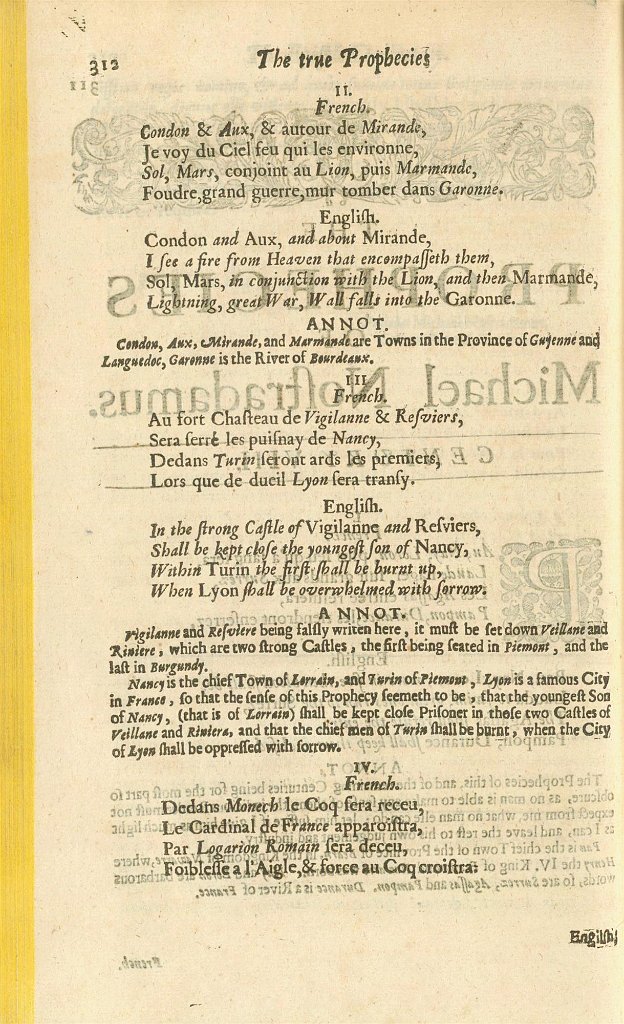 312
The true Prophecies
II.
French.
Condon & Aux, & autour de Mirande,
Je voy du Ciel feu qui les environne,
Sol, Mars, conjoint au Lion, puis Marmande,
Foudre, grand guerre, mur tomber dans Garonne.
English.
Condon and Aux, and about Mirande,
I see a fire from Heaven that encompasseth them,
Sol, Mars, in conjunction with the Lion, and then Marmande,
Lightning, great War, Wall falls into the Garonne.
ANNOT.
Condon, Aux, Mirande, and Marmande are Towns in the Province of Guyenne and
Languedoc, Garonne is the River of Bourdeaux.
III.
French.
Au fort Chasteau de Vigilanne & Resviers,
Sera serré les puisnay de Nancy,
Dedans Turin seront ards les premiers,
Lors que de dueil Lyon sera transy.
English.
In the strong Castle of Vigilanne and Resviers,
Shall be kept close the youngest son of Nancy,
Within Turin the first shall be burnt up,
When Lyon shall be overwhelmed with sorrow.
ANNOT.
Vigilanne and Resviere being falsly writen here, it must be set down Veillane and
Riviere, which are two strong Castles, the first being seated in Piemont, and the
last in Burgundy.
Nancy is the chief Town of Lorrain, and Turin of Piemont, Lyon is a famous City
in France, so that the sense of this Prophecy seemeth to be, that the youngest Son
of Nancy, (that is of Lorrain) shall be kept close Prisoner in those two Castles of
Veillane and Riviera, and that the chief men of Turin shall be burnt, when the City
of Lyon shall be oppressed with sorrow.
IV.
French.
Dedans Monech le Coq sera receu,
Le Cardinal de France apparoistra,
Par Logarion Romain sera deceu,
Foiblesse a l'Aigle, & force au Coq croistra.
English,